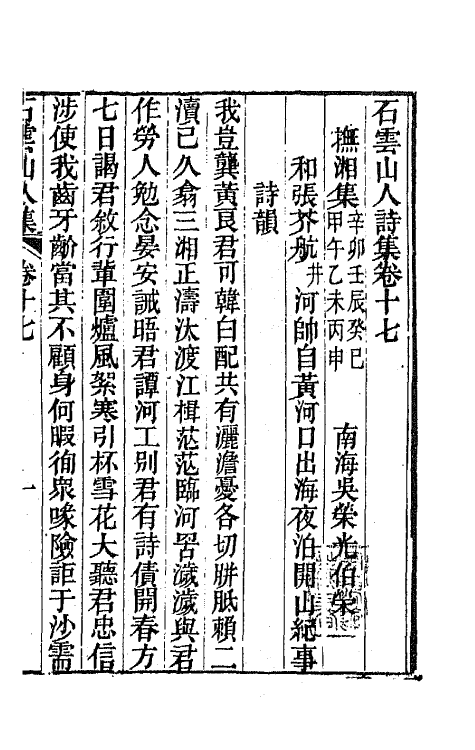 石雲山人詩集卷十七
撫湘集辛卯壬辰癸巳甲午乙未丙申 南海吳榮光伯榮
和張芥航井河帥自黃河口出海夜泊開山紀事
詩韻
我豈龔黃良君可韓白配共有灑澹憂各切胼胝賴二
瀆已久翕三湘正濤汰渡江楫𦶜𦶜臨河罟濊濊與君
作勞人勉念晏安誡晤君譚河工別君有詩債開春方
七日謁君敘行輩圍爐風絮寒引杯雪花大聽君忠信
涉使我齒牙齘當其不顧身何暇徇衆喙險詎于沙需
石雲山人集 卷十七 一